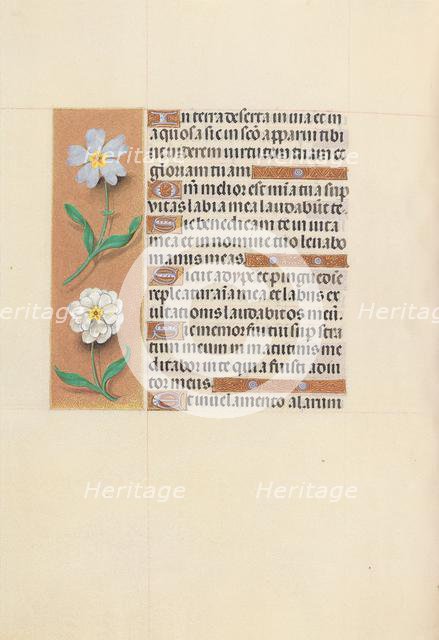 In terra deserta inuia et in
aquosa sic in sco apparui tibi
ut uiderem uirtutem tuam et
gloriam tuam
Qm melior est mia tua sup
vitas labia mea laudabunt te.
Sic benedicam te in uita
mea et in nomine tuo leuabo
manus meas
Sicut adype et pinguedine
repleatur aia mea et labiis ex
ultationis laudabit os meu.
Sic memor fui tui sup stra
tum meum in matutinis me
ditabor in te quia fuisti adiu
tor meus
Et in uelamento alarum
Heritage
Heritage
Heritage
Heritage
Heritage
Heritage